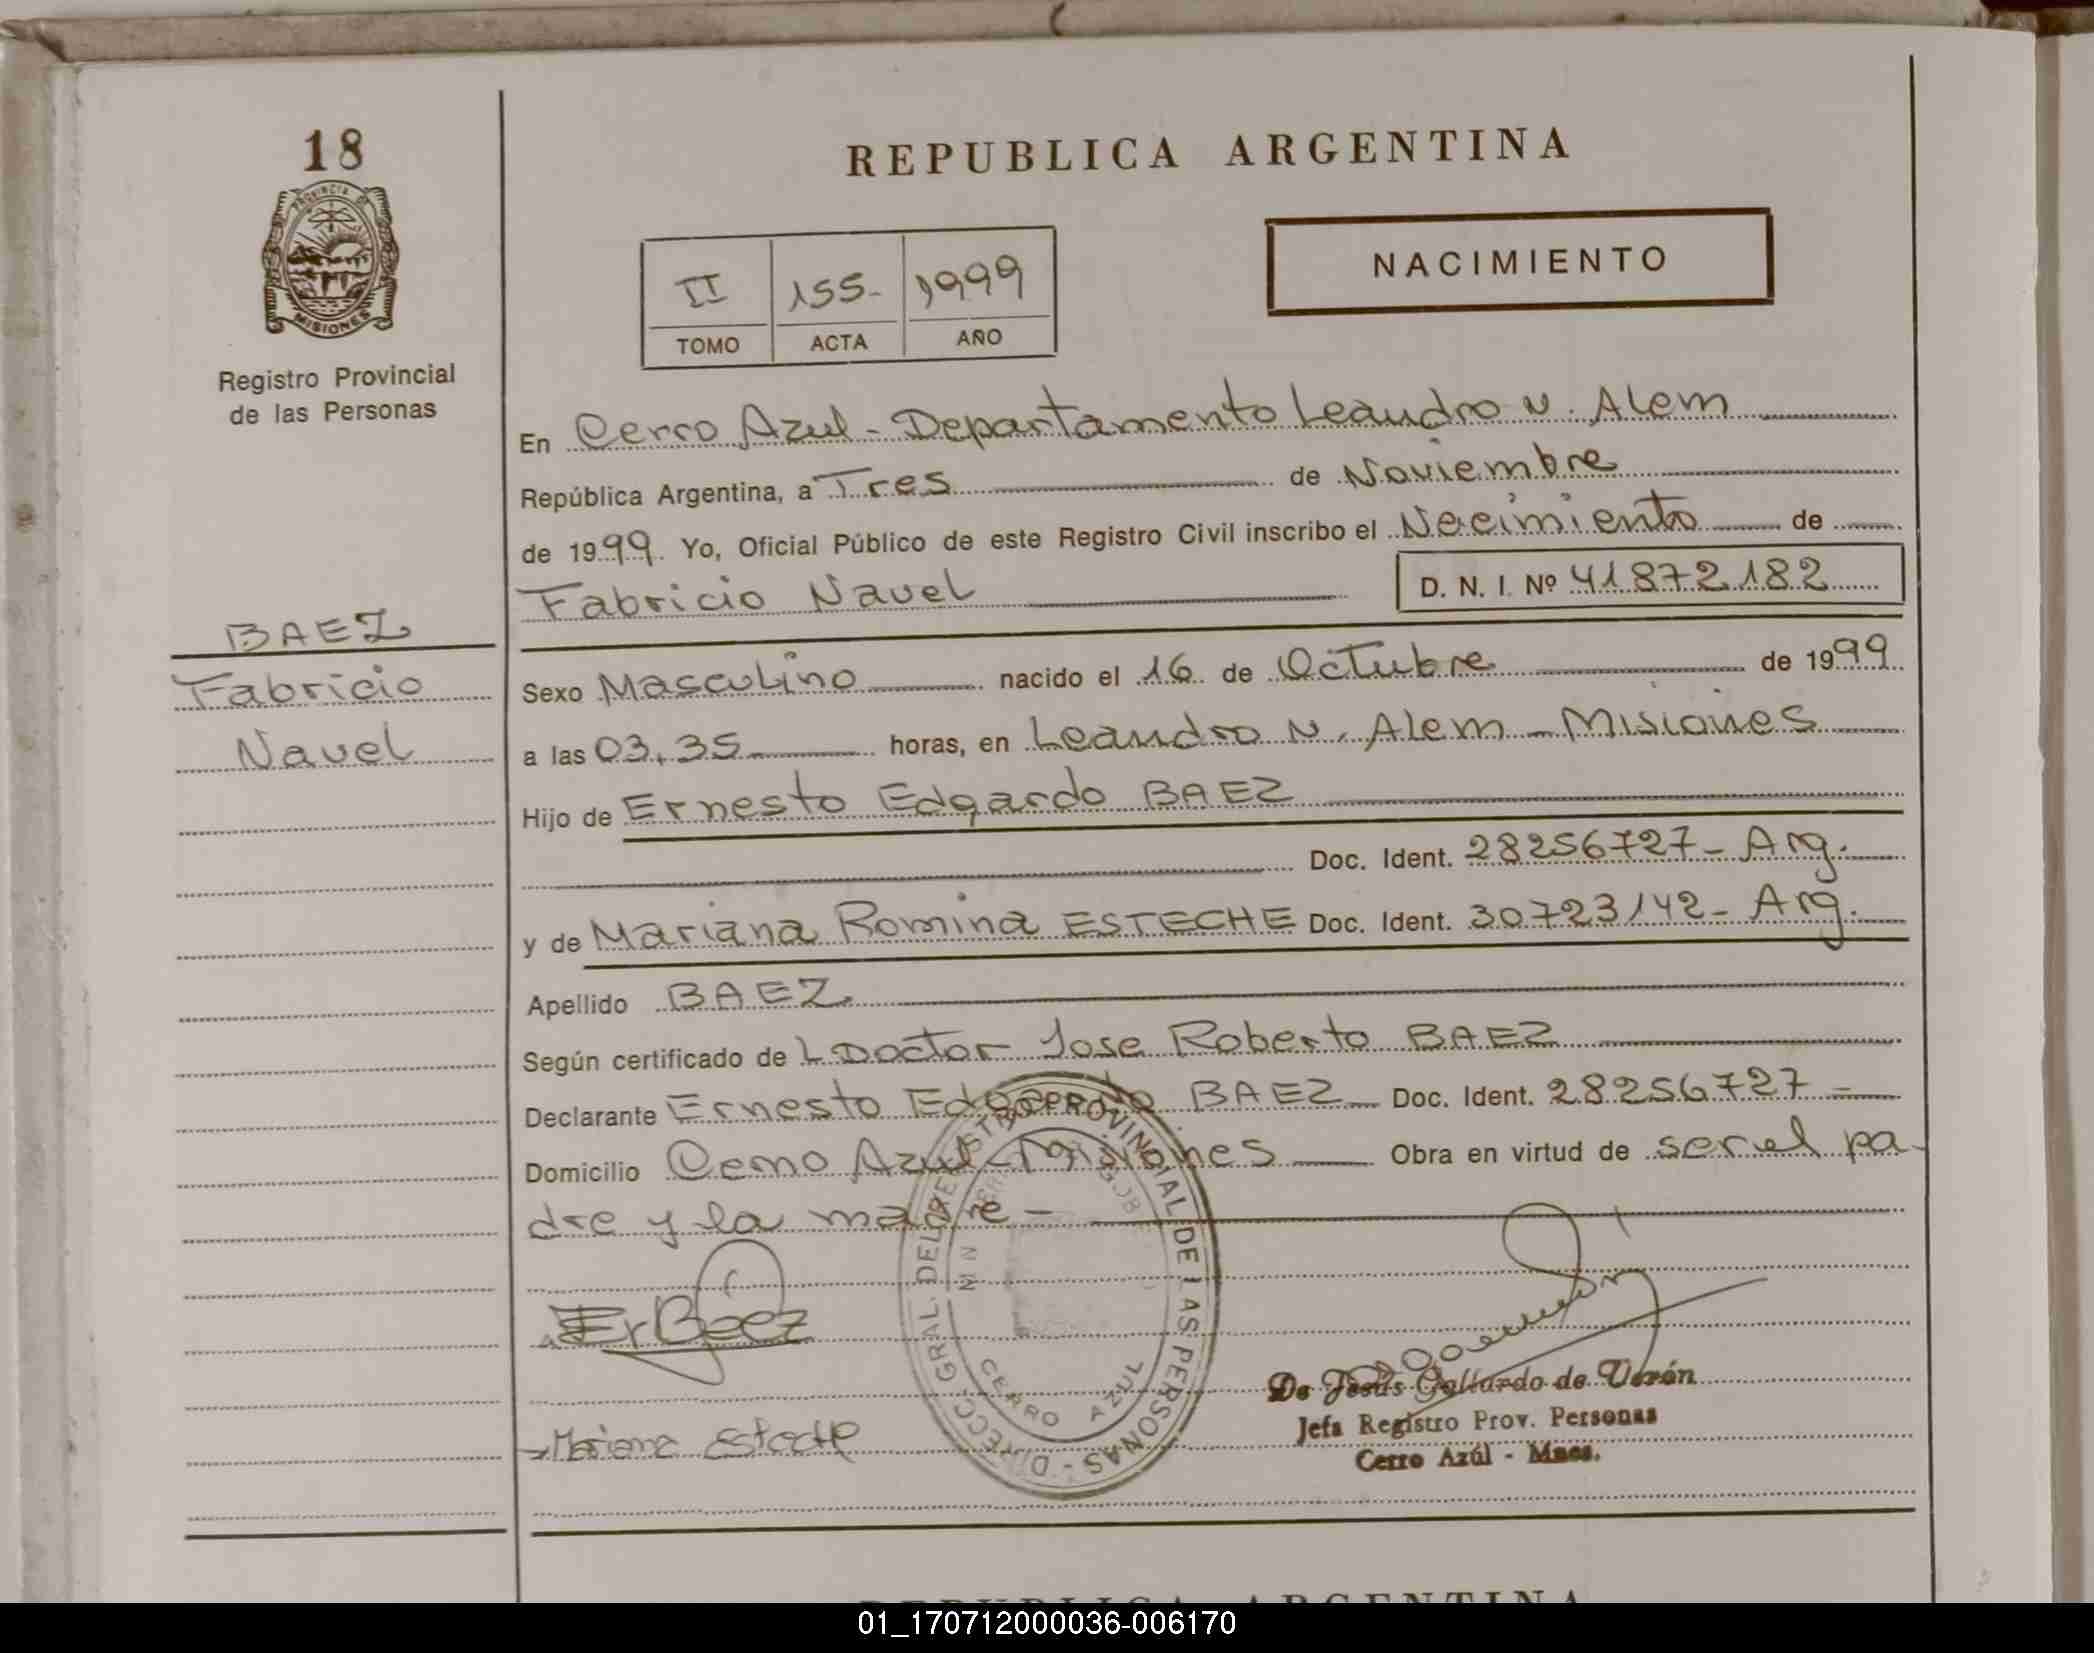 18
PROVINCIA DE
MISIONES
Registro Provincial
de las Personas
BAEZ
Fabricio
Nauel
REPUBLICA ARGENTINA
NACIMIENTO
II 155- 1999
TOMO ACTA AÑO
En Cerro Azul - Departamento Leandro N. Alem
República Argentina, a Tres de Noviembre
de 1999. Yo, Oficial Público de este Registro Civil inscribo el Nacimiento de
Fabricio Nauel D. N. I. Nº 41872182
Sexo Masculino nacido el 16 de Octubre de 1999
a las 03,35 horas, en Leandro N. Alem - Misiones
Hijo de Ernesto Edgardo BAEZ
Doc. Ident. 28256727- Arg.
y de Mariana Romina ESTECHE Doc. Ident. 30723142- Arg.
Apellido BAEZ
Según certificado de L Doctor Jose Roberto BAEZ
Declarante Ernesto Edgardo BAEZ Doc. Ident. 28256727 -
Domicilio Cerro Azul - Misiones Obra en virtud de ser el pa-
dre y la madre -
DIRECC. GRAL. DEL REGISTRO PROVINCIAL DE LAS PERSONAS -
CERRO AZUL
Er Baez
Mariana Esteche
De Jesús Gallardo de Verón
Jefa Registro Prov. Personas
Cerro Azúl - Mnes.
REPUBLICA ARGENTINA
01_170712000036-006170